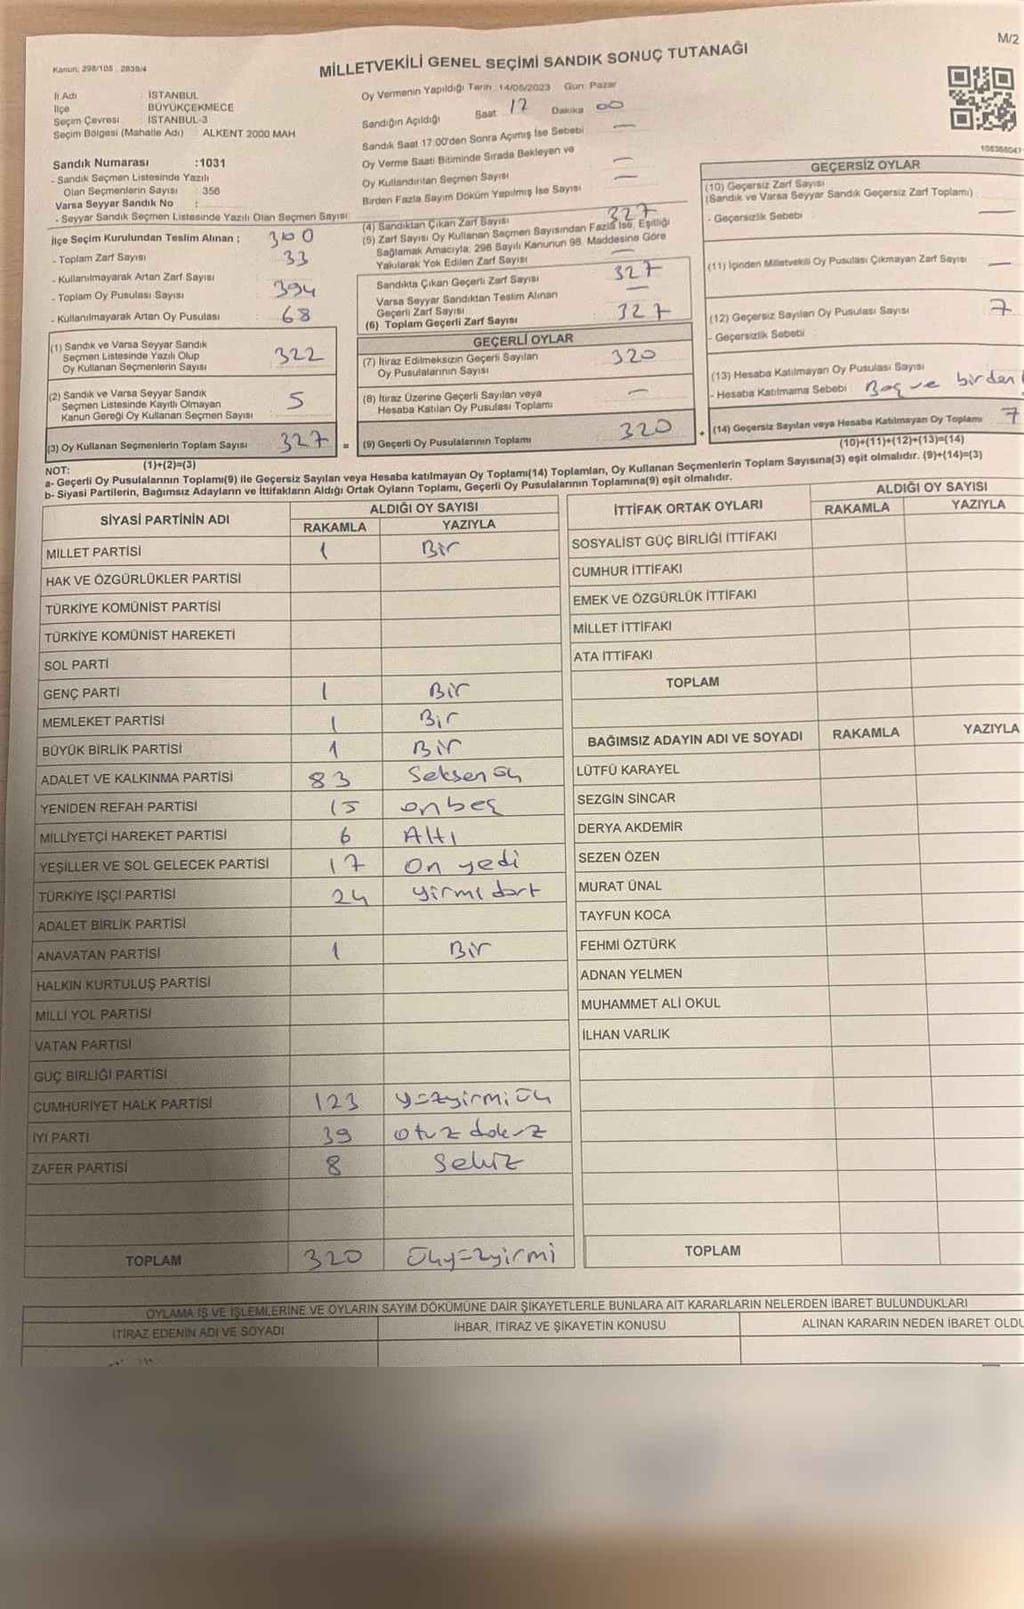 M/2
Kanun: 298/105 2839/4
MİLLETVEKİLİ GENEL SEÇİMİ SANDIK SONUÇ TUTANAĞI
İl Adı : İSTANBUL
İlçe : BÜYÜKÇEKMECE
Seçim Çevresi : İSTANBUL-3
Seçim Bölgesi (Mahalle Adı) : ALKENT 2000 MAH
Sandık Numarası :1031
- Sandık Seçmen Listesinde Yazılı
Olan Seçmenlerin Sayısı : 356
Varsa Seyyar Sandık No :
- Seyyar Sandık Seçmen Listesinde Yazılı Olan Seçmen Sayısı
Oy Vermenin Yapıldığı Tarih : 14/05/2023 Gün: Pazar
Sandığın Açıldığı Saat 17 Dakika 00
Sandık Saat 17:00'den Sonra Açımış İse Sebebi —
Oy Verme Saati Bitiminde Sırada Bekleyen ve
Oy Kullandırılan Seçmen Sayısı —
Birden Fazla Sayım Döküm Yapılmış İse Sayısı —
İlçe Seçim Kurulundan Teslim Alınan ;
- Toplam Zarf Sayısı
- Kullanılmayarak Artan Zarf Sayısı 33
- Toplam Oy Pusulası Sayısı 394
- Kullanılmayarak Artan Oy Pusulası 68
(1) Sandık ve Varsa Seyyar Sandık
Seçmen Listesinde Yazılı Olup
Oy Kullanan Seçmenlerin Sayısı 322
(2) Sandık ve Varsa Seyyar Sandık
Seçmen Listesinde Kayıtlı Olmayan
Kanun Gereği Oy Kullanan Seçmen Sayısı 5
(3) Oy Kullanan Seçmenlerin Toplam Sayısı 327 =
(1)+(2)=(3)
(4) Sandıktan Çıkan Zarf Sayısı 327
(5) Zarf Sayısı Oy Kullanan Seçmen Sayısından Fazla İse, Eşitliği
Sağlamak Amacıyla; 298 Sayılı Kanunun 98. Maddesine Göre
Yakılarak Yok Edilen Zarf Sayısı —
Sandıkta Çıkan Geçerli Zarf Sayısı 327
Varsa Seyyar Sandıktan Teslim Alınan
Geçerli Zarf Sayısı —
(6) Toplam Geçerli Zarf Sayısı 327
GEÇERLİ OYLAR
(7) İtiraz Edilmeksizin Geçerli Sayılan
Oy Pusulalarının Sayısı 320
(8) İtiraz Üzerine Geçerli Sayılan veya
Hesaba Katılan Oy Pusulası Toplamı —
(9) Geçerli Oy Pusulalarının Toplamı 320 +
GEÇERSİZ OYLAR
(10) Geçersiz Zarf Sayısı
(Sandık ve Varsa Seyyar Sandık Geçersiz Zarf Toplamı)
- Geçersizlik Sebebi —
(11) İçinden Milletvekili Oy Pusulası Çıkmayan Zarf Sayısı —
(12) Geçersiz Sayılan Oy Pusulası Sayısı 7
- Geçersizlik Sebebi
(13) Hesaba Katılmayan Oy Pusulası Sayısı
- Hesaba Katılmama Sebebi Boş ve birden
(14) Geçersiz Sayılan veya Hesaba Katılmayan Oy Toplamı 7
(10)+(11)+(12)+(13)=(14)
NOT:
a- Geçerli Oy Pusulalarının Toplamı(9) ile Geçersiz Sayılan veya Hesaba katılmayan Oy Toplamı(14) Toplamları, Oy Kullanan Seçmenlerin Toplam Sayısına(3) eşit olmalıdır. (9)+(14)=(3)
b- Siyasi Partilerin, Bağımsız Adayların ve İttifakların Aldığı Ortak Oyların Toplamı, Geçerli Oy Pusulalarının Toplamına(9) eşit olmalıdır.
SİYASİ PARTİNİN ADI ALDIĞI OY SAYISI
RAKAMLA YAZIYLA
MİLLET PARTİSİ 1 Bir
HAK VE ÖZGÜRLÜKLER PARTİSİ
TÜRKİYE KOMÜNİST PARTİSİ
TÜRKİYE KOMÜNİST HAREKETİ
SOL PARTİ
GENÇ PARTİ 1 Bir
MEMLEKET PARTİSİ 1 Bir
BÜYÜK BİRLİK PARTİSİ 1 Bir
ADALET VE KALKINMA PARTİSİ 83 Seksen üç
YENİDEN REFAH PARTİSİ 15 onbeş
MİLLİYETÇİ HAREKET PARTİSİ 6 Altı
YEŞİLLER VE SOL GELECEK PARTİSİ 17 On yedi
TÜRKİYE İŞÇİ PARTİSİ 24 yirmi dört
ADALET BİRLİK PARTİSİ
ANAVATAN PARTİSİ 1 Bir
HALKIN KURTULUŞ PARTİSİ
MİLLİ YOL PARTİSİ
VATAN PARTİSİ
GÜÇ BİRLİĞİ PARTİSİ
CUMHURİYET HALK PARTİSİ 123 yüzyirmi üç
İYİ PARTİ 39 otuz dokuz
ZAFER PARTİSİ 8 Sekiz
TOPLAM 320 Üçyüzyirmi
İTTİFAK ORTAK OYLARI ALDIĞI OY SAYISI
RAKAMLA YAZIYLA
SOSYALİST GÜÇ BİRLİĞİ İTTİFAKI
CUMHUR İTTİFAKI
EMEK VE ÖZGÜRLÜK İTTİFAKI
MİLLET İTTİFAKI
ATA İTTİFAKI
TOPLAM
BAĞIMSIZ ADAYIN ADI VE SOYADI RAKAMLA YAZIYLA
LÜTFÜ KARAYEL
SEZGİN SİNCAR
DERYA AKDEMİR
SEZEN ÖZEN
MURAT ÜNAL
TAYFUN KOCA
FEHMİ ÖZTÜRK
ADNAN YELMEN
MUHAMMET ALİ OKUL
İLHAN VARLIK
TOPLAM
OYLAMA İŞ VE İŞLEMLERİNE VE OYLARIN SAYIM DÖKÜMÜNE DAİR ŞİKAYETLERLE BUNLARA AİT KARARLARIN NELERDEN İBARET BULUNDUKLARI
İTİRAZ EDENİN ADI VE SOYADI İHBAR, İTİRAZ VE ŞİKAYETİN KONUSU ALINAN KARARIN NEDEN İBARET OLDU